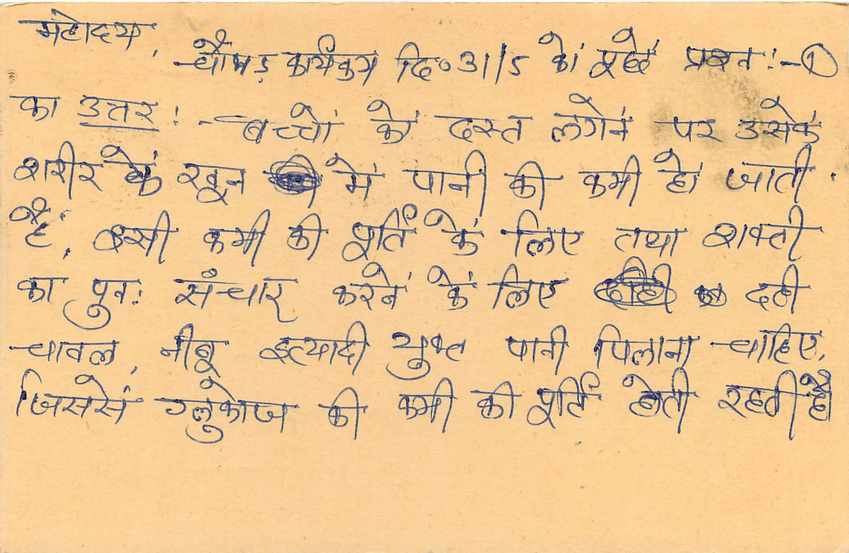 महोदय,
चौपाड़ कार्यक्रम दि० 31/5 को पूछे प्रश्न :- ①
का उत्तर :- बच्चो को दस्त लगने पर उसके
शरीर के खून में पानी की कमी हो जाती
है, इसी कमी की पूर्ति के लिए तथा शक्ती
का पुनः संचार करने के लिए दही
चावल, नीबू इत्यादी युक्त पानी पिलाना चाहिए,
जिससे ग्लुकोज की कमी की पूर्ति होती रहती है